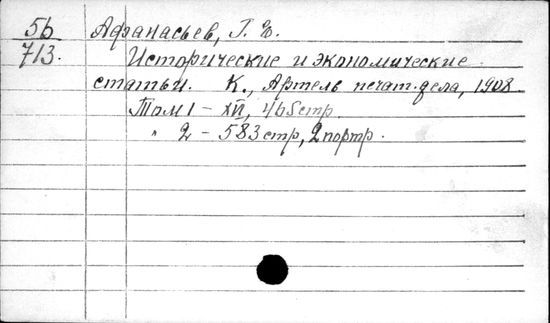 5б Афанасьев, Г. Е.
713. Исторические и экономические
статьи. К., Артель печат. дела, 1908.
Том 1 – XII, 465 стр.
" 2 – 583 стр, 2 портр.